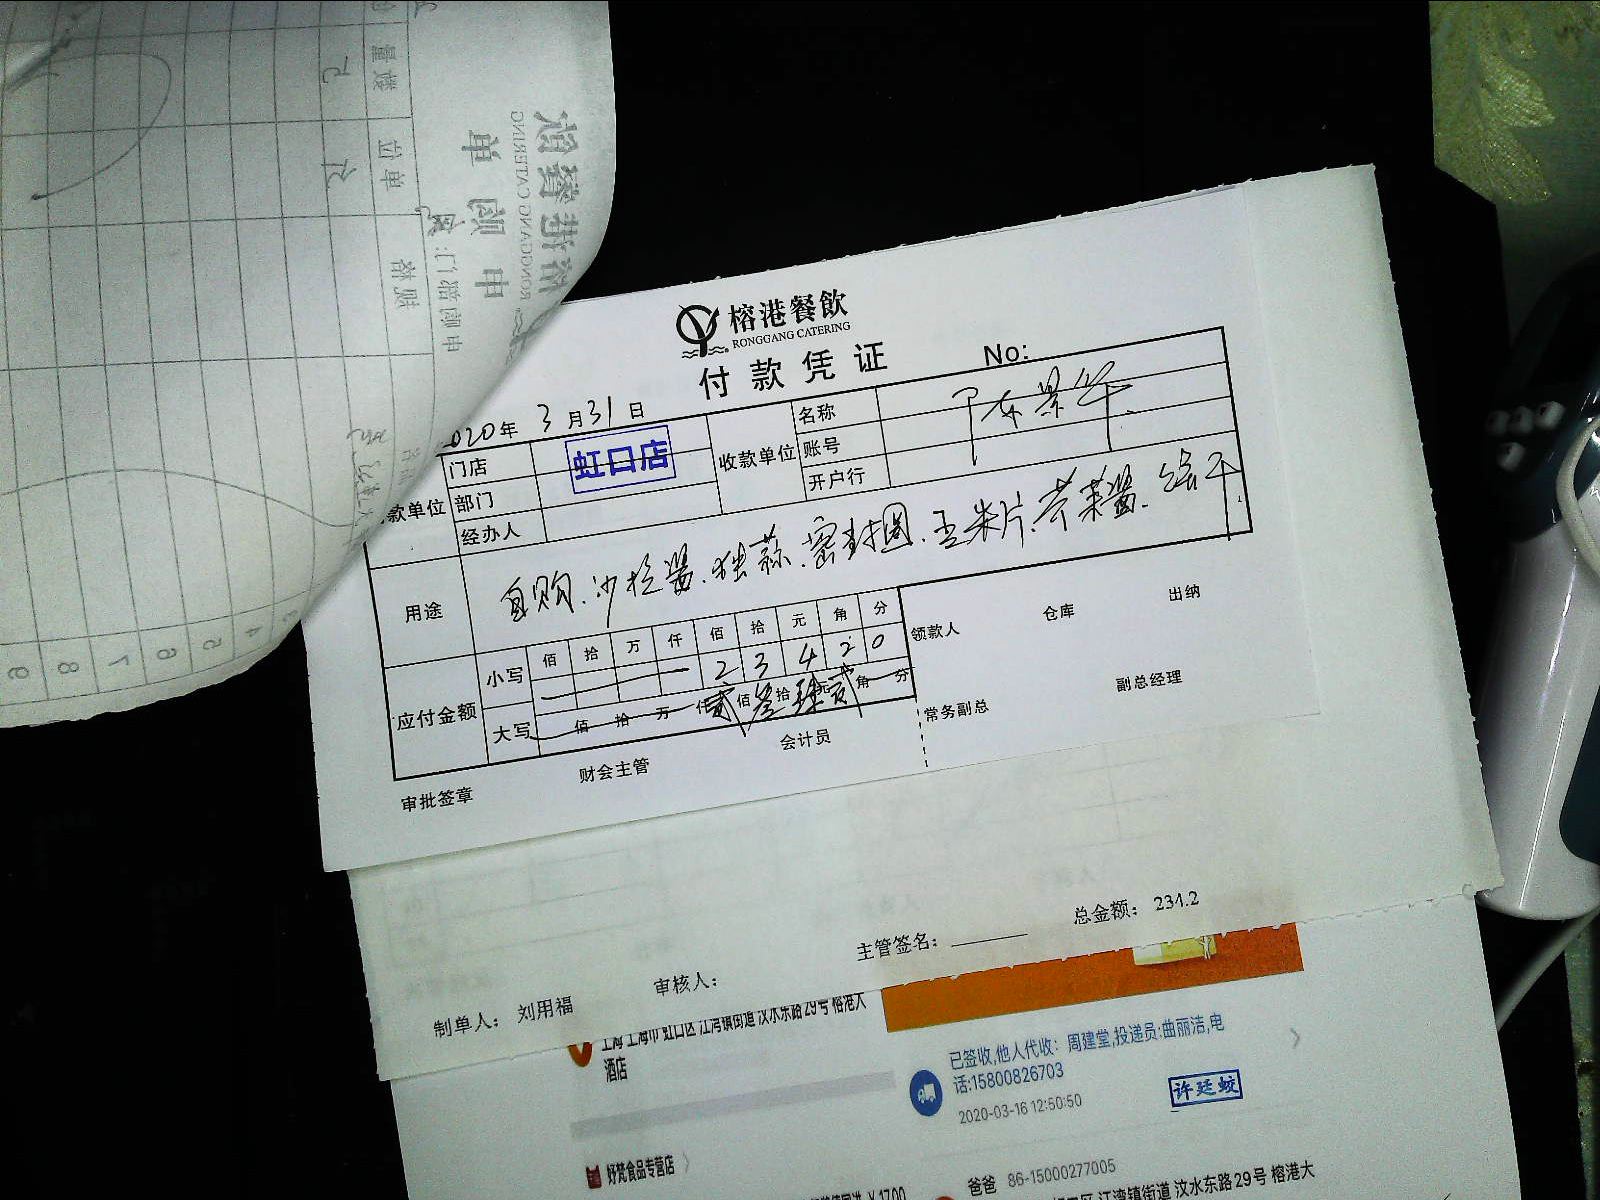 榕港餐飲
RONGGANG CATERING
付款凭证
No:
2020年 3月31日
款单位 门店 虹口店
部门
经办人
收款单位 名称
账号
开户行
用途 自购.沙拉酱.独蒜.密封圈.玉米片.芥菜酱.
应付金额 小写 佰 拾 万 仟 佰 拾 元 角 分
2 3 4 2 0
大写 佰 拾 万 仟 贰 佰 叁 拾 肆 元 贰 角 分
领款人 仓库 出纳
常务副总 副总经理
审批签章 财会主管 会计员
总金额: 234.2
制单人: 刘用福 审核人: 主管签名:
上海 上海市 虹口区 江湾镇街道 汶水东路29号 榕港大
酒店
已签收,他人代收: 周建堂,投递员:曲丽洁,电
话:15800826703
2020-03-16 12:50:50
许廷蛟
好梵食品专营店
爸爸 86-15000277005
江湾镇街道 汶水东路29号 榕港大
榕港餐飲
RONGGANG CATERING
申购单
申购部门:
单位